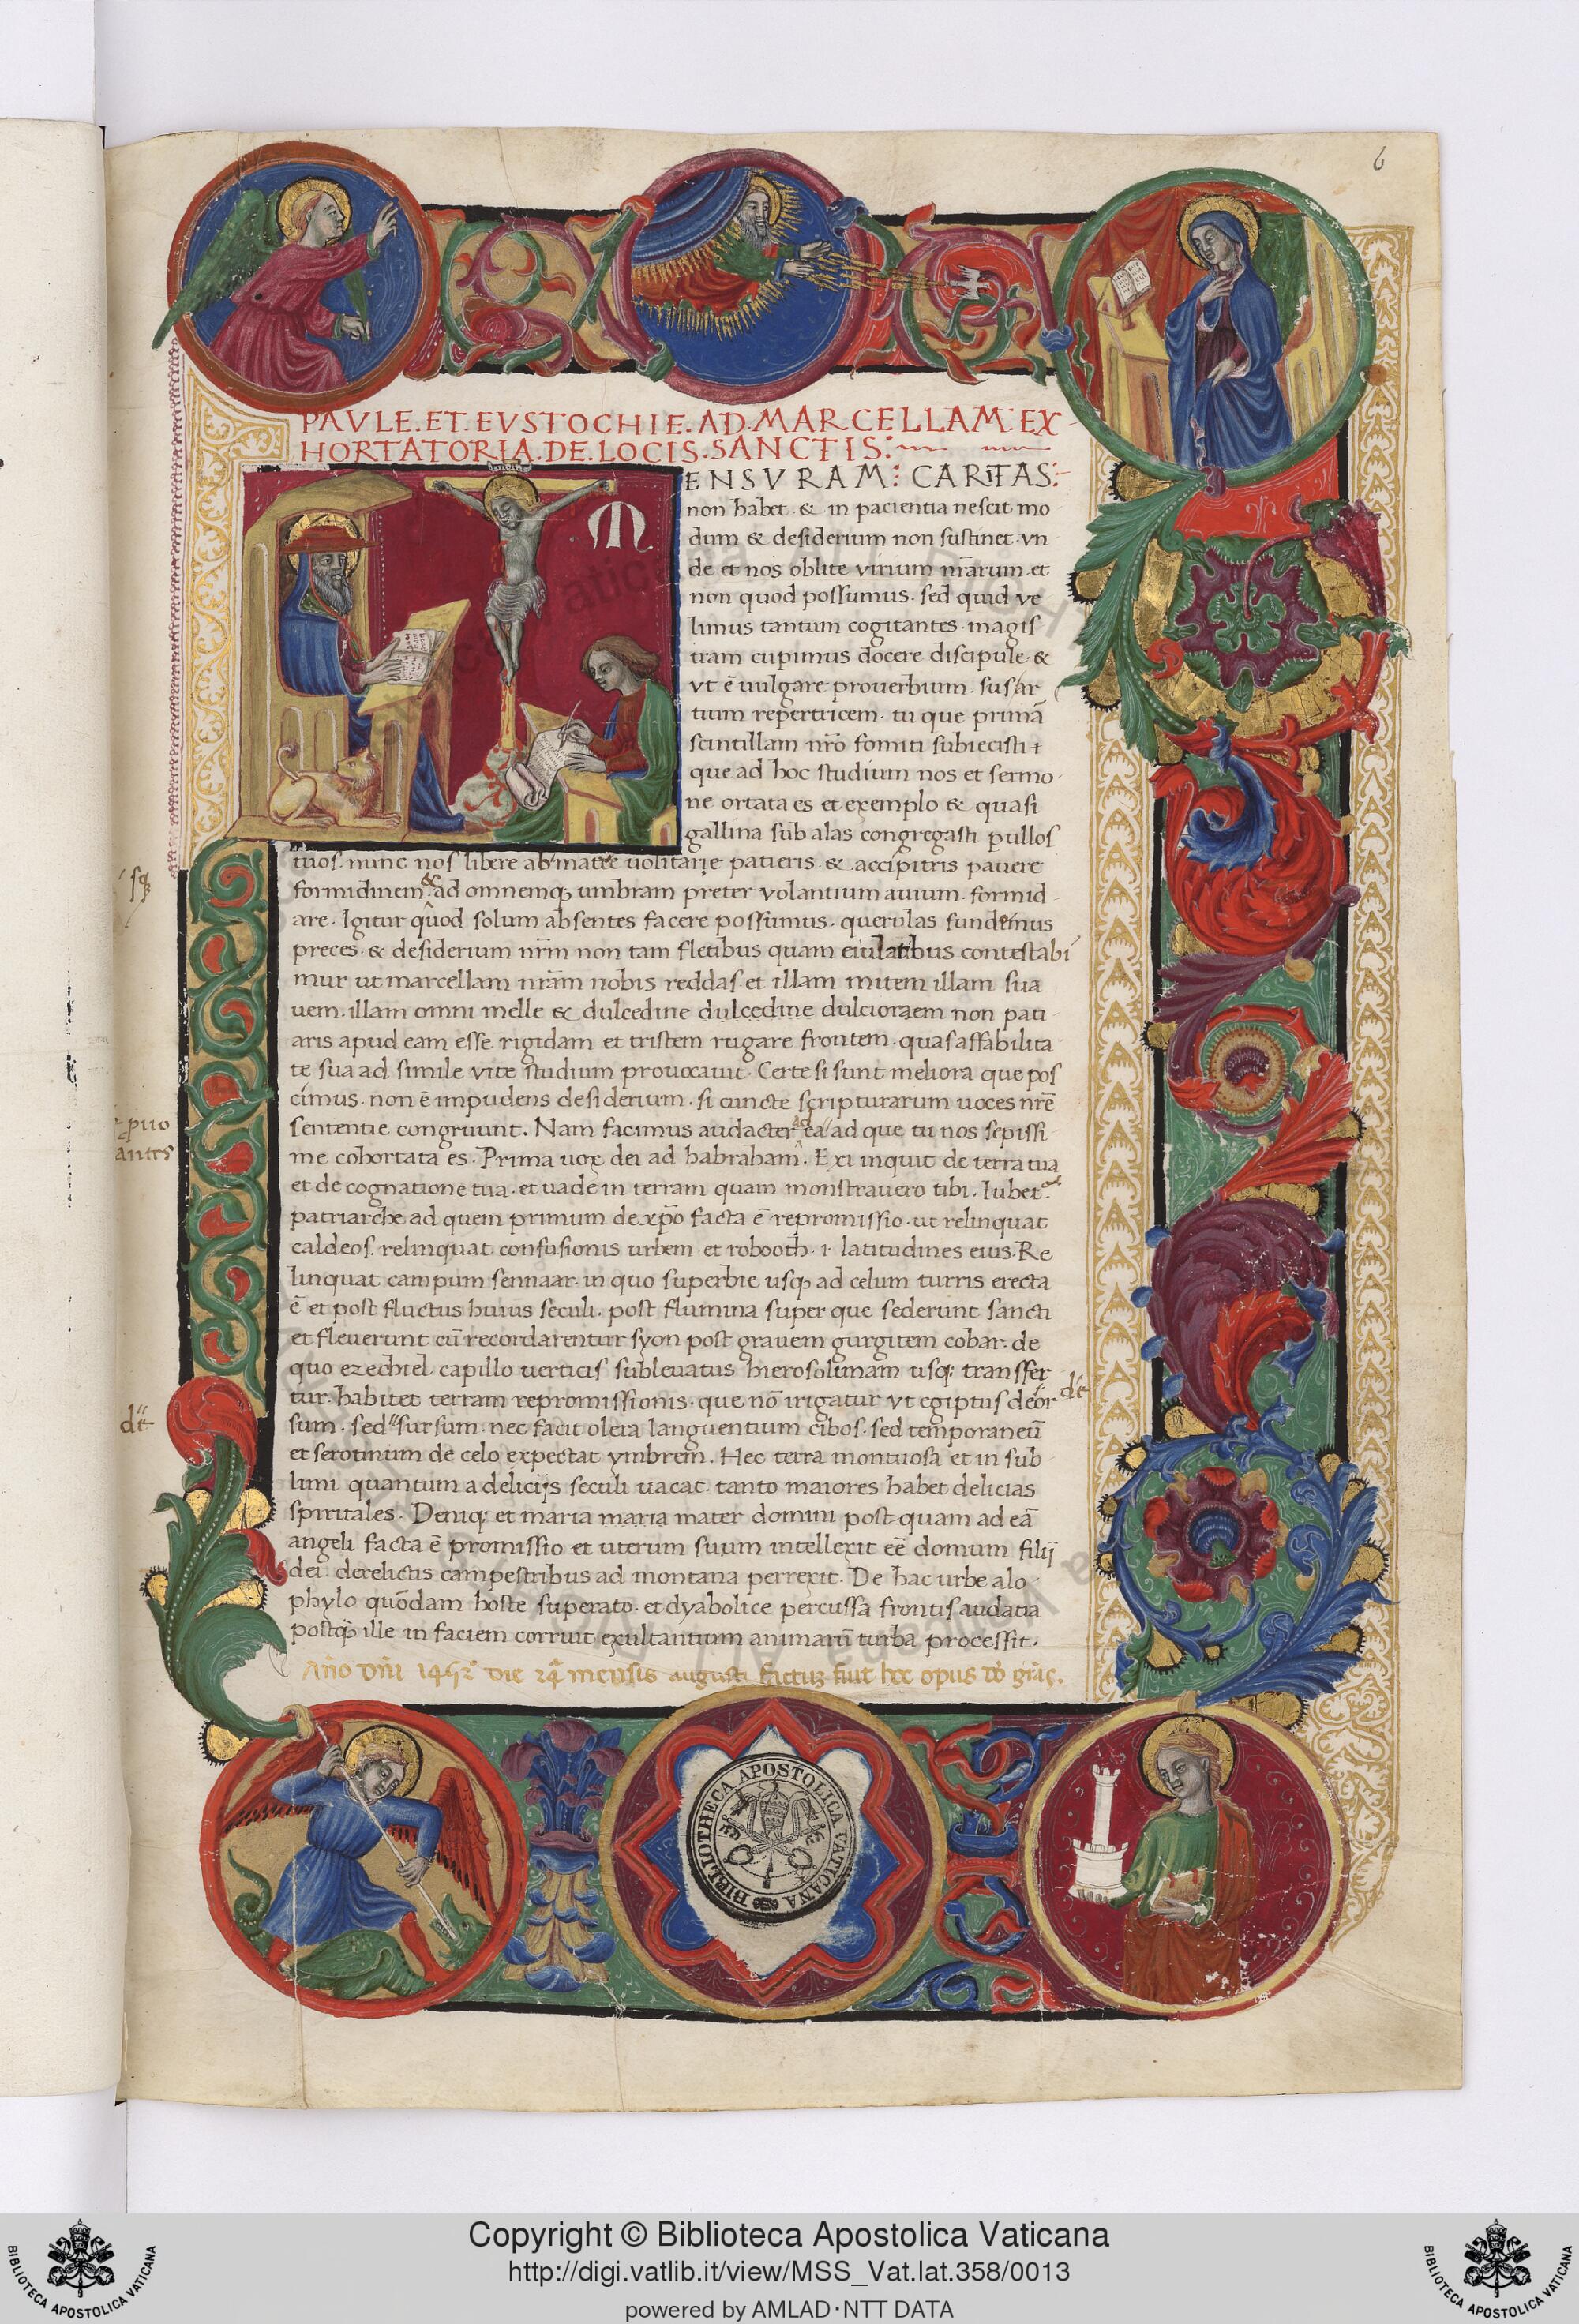 6
PAVLE. ET. EVSTOCHIE. AD. MARCELLAM. EX-
HORTATORIA. DE. LOCIS. SANCTIS:
M
ENSVRAM: CARITAS:
non habet. & in pacientia nescit mo
dum & desiderium non sustinet. vn
de et nos oblite virium nr̄arum et
non quod possumus. sed quid ve
limus tantum cogitantes. magis
tram cupimus docere discipule. &
vt ē uulgare prouerbium. sus ar
tium repertricem. tu que primā
scintillam nr̄o fomiti subiecisti
que ad hoc studium nos et sermo
ne ortata es et exemplo & quasi
gallina sub alas congregasti pullos
tuos. nunc nos libere ab matre uolitare patieris. & accipitris pauere
formidinem & ad omnemq; umbram preter volantium auium. formid
are. Igitur quod solum absentes facere possumus. querulas fundimus
preces. & desiderium nr̄m non tam fletibus quam eiulatibus contestabi
mur ut marcellam nr̄am nobis reddas. et illam mitem illam sua
uem. illam omni melle & dulcedine dulcedine dulciorem non pati
aris apud eam esse rigidam et tristem rugare frontem. quas affabilita
te sua ad simile vite studium prouocauit. Certe si sunt meliora que pos
cimus. non ē impudens desiderium. si cuncte scripturarum uoces nr̄e
sententie congruunt. Nam facimus audacter ad ea ad que tu nos sepissi
me cohortata es. Prima uox dei ad habraham. Exi inquit de terra tua
et de cognatione tua. et uade in terram quam monstrauero tibi. Iubet
patriarche ad quem primum de xp̄o facta ē repromissio. ut relinquat
caldeos. relinquat confusionis urbem et robooth. i. latitudines eius. Re
linquat campum sennaar. in quo superbie usq; ad celum turris erecta
ē et post fluctus huius seculi. post flumina super que sederunt sancti
et fleuerunt cū recordarentur syon post grauem gurgitem cobar. de
quo ezechiel capillo uerticis subleuatus hierosolimam usq; transfer
tur. habitet terram repromissionis. que nō irigatur vt egiptus deor
sum. sed sursum. nec facit olera languentium cibos. sed temporaneū
et serotinum de celo expectat ymbrem. Hec terra montuosa et in sub
limi quantum a deliciis seculi uacat. tanto maiores habet delicias
spiritales. Deniq; et maria maria mater domini post quam ad eā
angeli facta ē promissio et uterum suum intellexit eē domum filij
dei derelictis campestribus ad montana perrexit. De hac urbe alo
phylo quōdam hoste superato. et dyabolice percussa frontis audatia
postq̄ ille in faciem corruit exultantium animarū turba processit.
Año dñi 1462 die 24 mensis augusti factuz fuit hoc opus dō grãs.
BIBLIOTHECA APOSTOLICA VATICANA
Copyright © Biblioteca Apostolica Vaticana
http://digi.vatlib.it/view/MSS_Vat.lat.358/0013
powered by AMLAD·NTT DATA
BIBLIOTECA APOSTOLICA VATICANA
BIBLIOTECA APOSTOLICA VATICANA